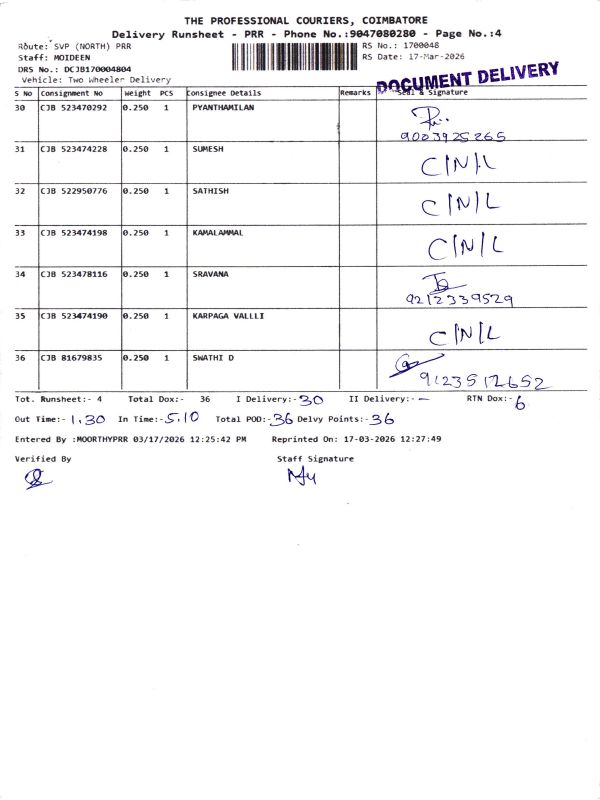 THE PROFESSIONAL COURIERS, COIMBATORE
Delivery Runsheet - PRR - Phone No.:9047080280 - Page No.:4
Route: SVP (NORTH) PRR RS No.: 1700048
Staff: MOIDEEN RS Date: 17-Mar-2026
DRS No.: DCJB170004804
Vehicle: Two Wheeler Delivery
DOCUMENT DELIVERY
S No Consignment No Weight PCS Consignee Details Remarks Seal & Signature
30 CJB 523470292 0.250 1 PYANTHAMILAN
9003925265
31 CJB 523474228 0.250 1 SUMESH C/N/L
32 CJB 522950776 0.250 1 SATHISH C/N/L
33 CJB 523474198 0.250 1 KAMALAMMAL C/N/L
34 CJB 523478116 0.250 1 SRAVANA
9212339529
35 CJB 523474190 0.250 1 KARPAGA VALLLI C/N/L
36 CJB 81679835 0.250 1 SWATHI D
9123512652
Tot. Runsheet:- 4 Total Dox:- 36 I Delivery:- 30 II Delivery:- - RTN Dox:- 6
Out Time:- 1.30 In Time:- 5.10 Total POD:- 36 Delvy Points:- 36
Entered By :MOORTHYPRR 03/17/2026 12:25:42 PM Reprinted On: 17-03-2026 12:27:49
Verified By Staff Signature